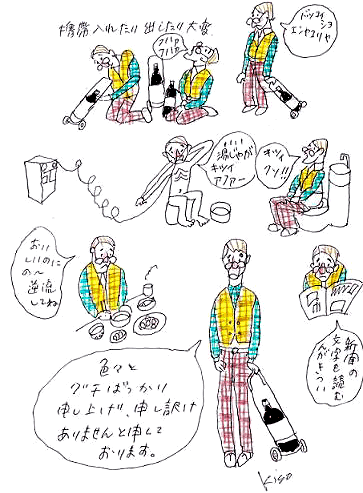 携帯入れたり出したり大変
フハァ
フハァ
ドッコイ
ショ
エンヤコリャ
湯じゃが
キツイ
アファー
キツイ
クソ!!
おいしい
のにの〜
逆流
してね
新聞の
文字も読む
んがきつい
色々と
グチばっかり
申し上げ、申し訳け
ありませんと申して
おります。
Kiso